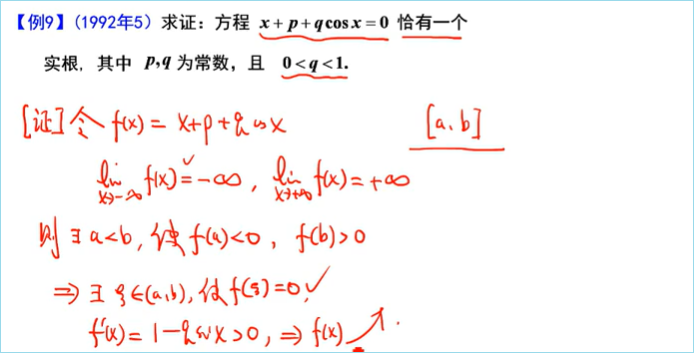 【例9】(1992年5) 求证：方程 x + p + q cos x = 0 恰有一个
实根, 其中 p,q 为常数，且 0 < q < 1.
[证] 令 f(x) = x+p+q cos x [a,b]
lim x→-∞ f(x) = -∞, lim x→+∞ f(x) = +∞
则 ∃ a<b, 使 f(a)<0, f(b)>0
⇒ ∃ ξ∈(a,b), 使 f(ξ)=0,
f'(x) = 1-q sin x >0, ⇒ f(x) ↗.